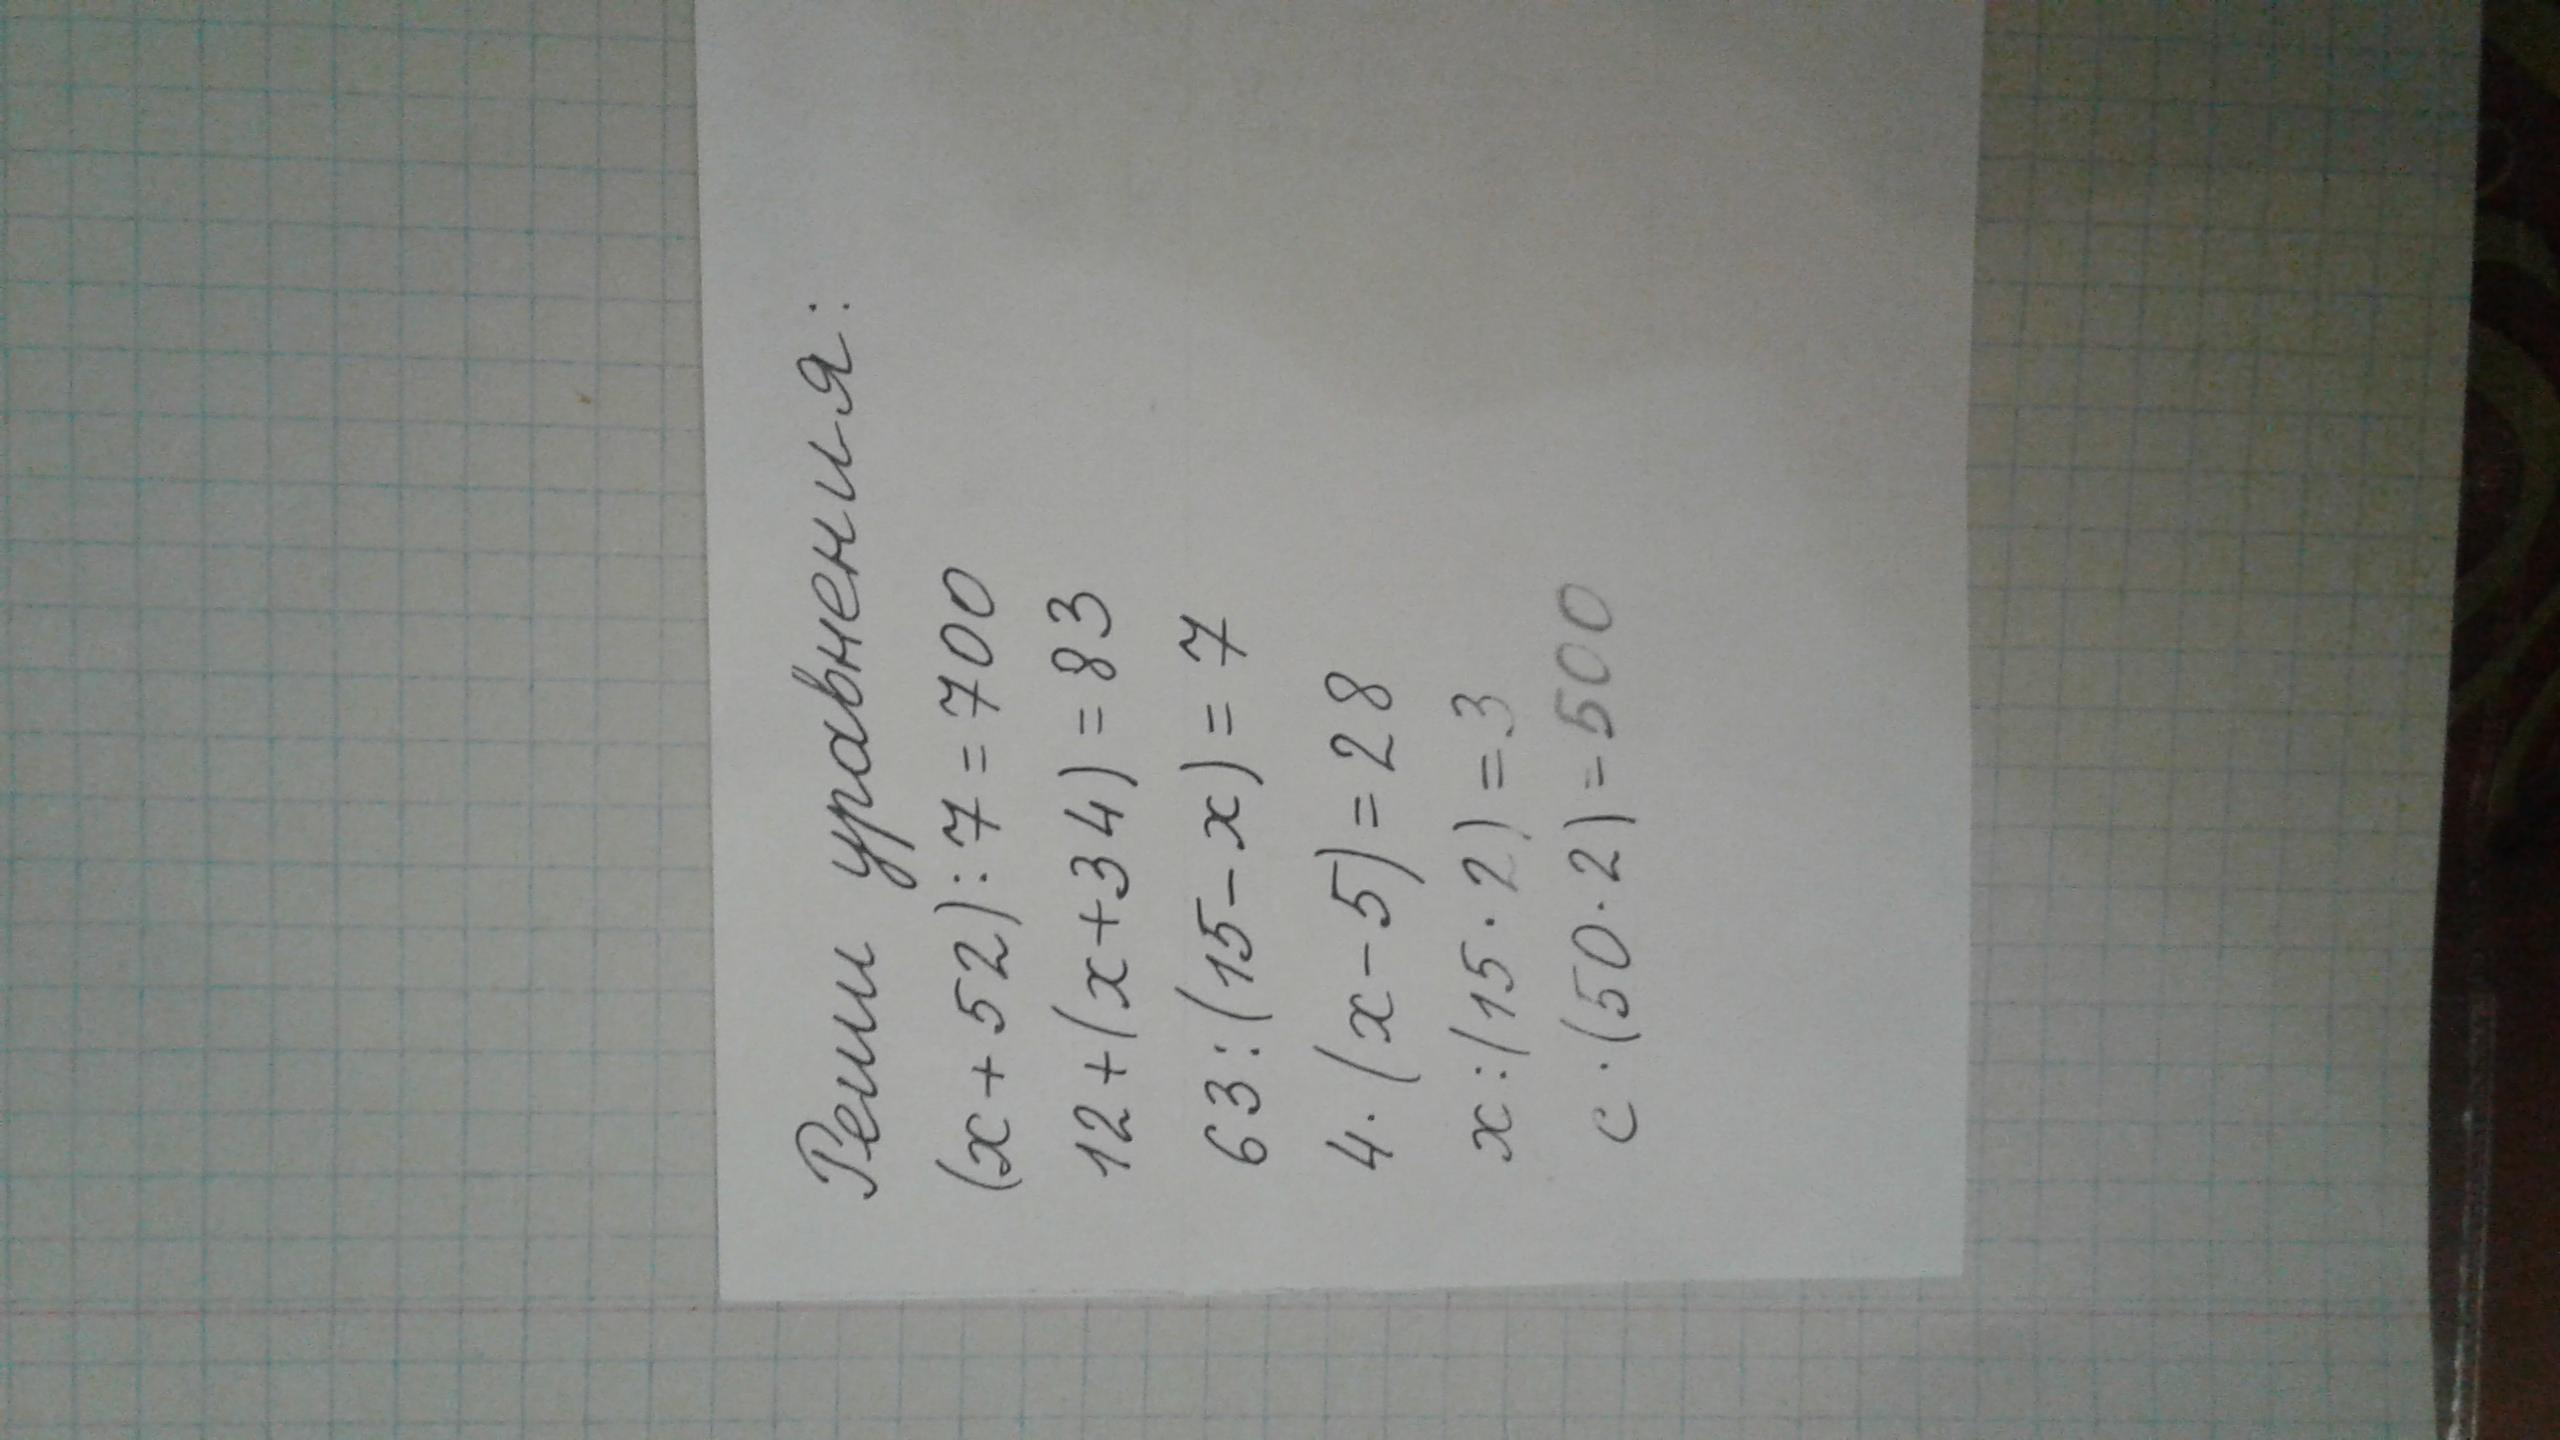 Реши уравнения:
(x+52):7=700
12+(x+34)=83
63:(15-x)=7
4·(x-5)=28
x:(15·2)=3
c·(50·2)=500